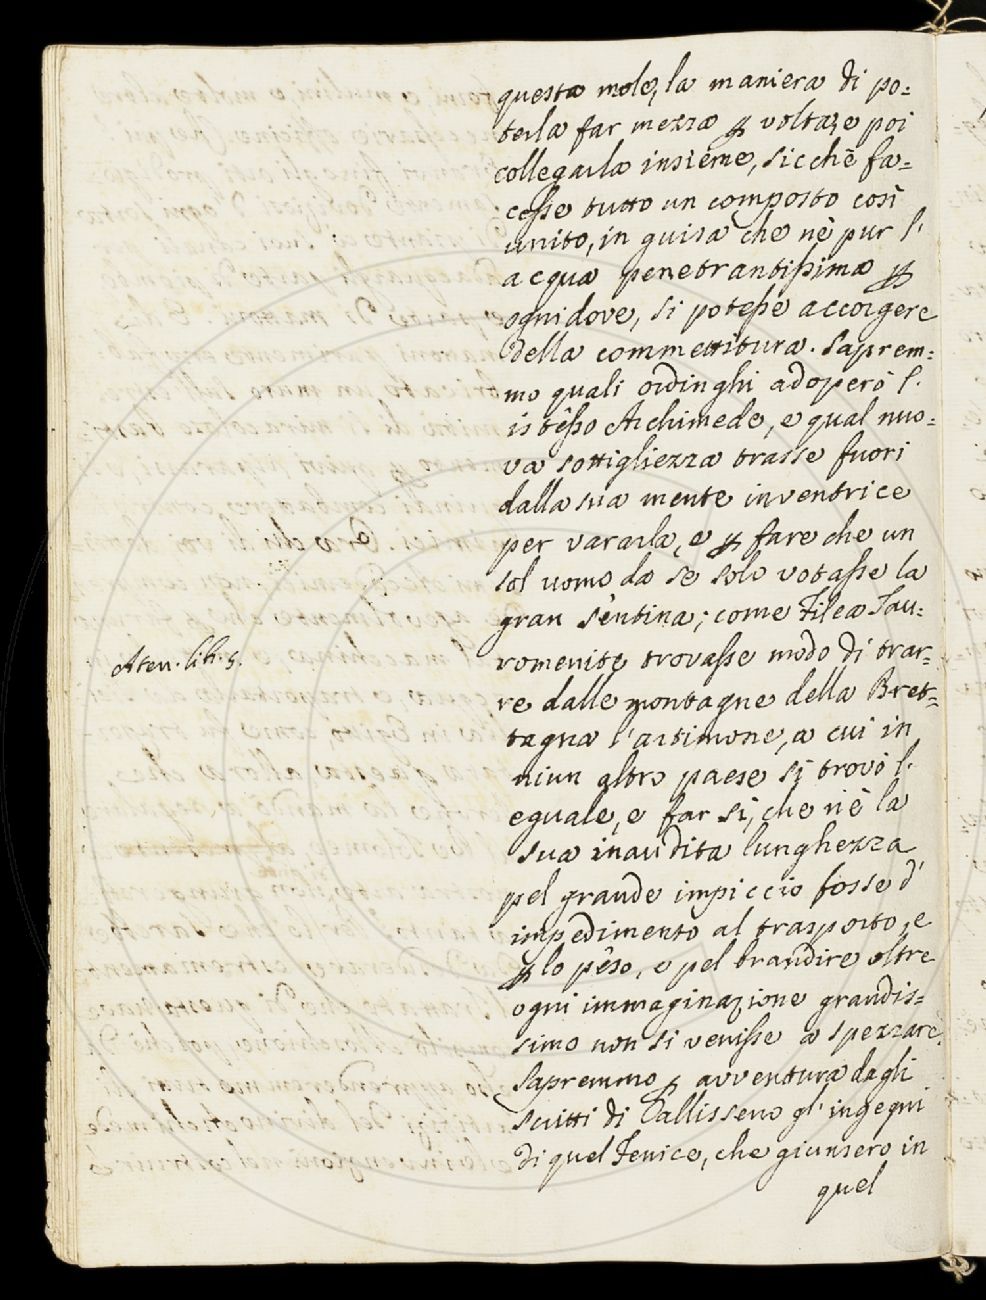 questa mole, la maniera di po=
terla far mezza ꝑ volta, e poi
collegarla insieme, sicchè fa=
cesse tutto un composto così
unito, in guisa che nè pur l'
acqua penetrantissima ꝑ
ognidove, si potesse accorgere
della commettitura. Saprem=
mo quali ordinghi adoperò l'
istesso Archimede, e qual nuo=
va sottigliezza trasse fuori
dalla sua mente inventrice
per vararla, e ꝑ fare che un
sol uomo da se solo votasse la
gran sentina; come Filea Tau=
Aten. lib. 5.
romenite trovasse modo di trar=
re dalle montagne della Bret=
tagna l'artimone, a cui in
niun altro paese si trovò l'
eguale, e far sì, che nè la
sua inaudita lunghezza
pel grande impiccio fosse d'
impedimento al trasporto, e
ꝑ lo peso, e pel brandire oltre
ogni immaginazione grandis=
simo non si venisse a spezzare.
Sapremmo ꝑ avventura dagli
scritti di Callisseno gl'ingegni
di quel Fenice, che giunsero in
quel